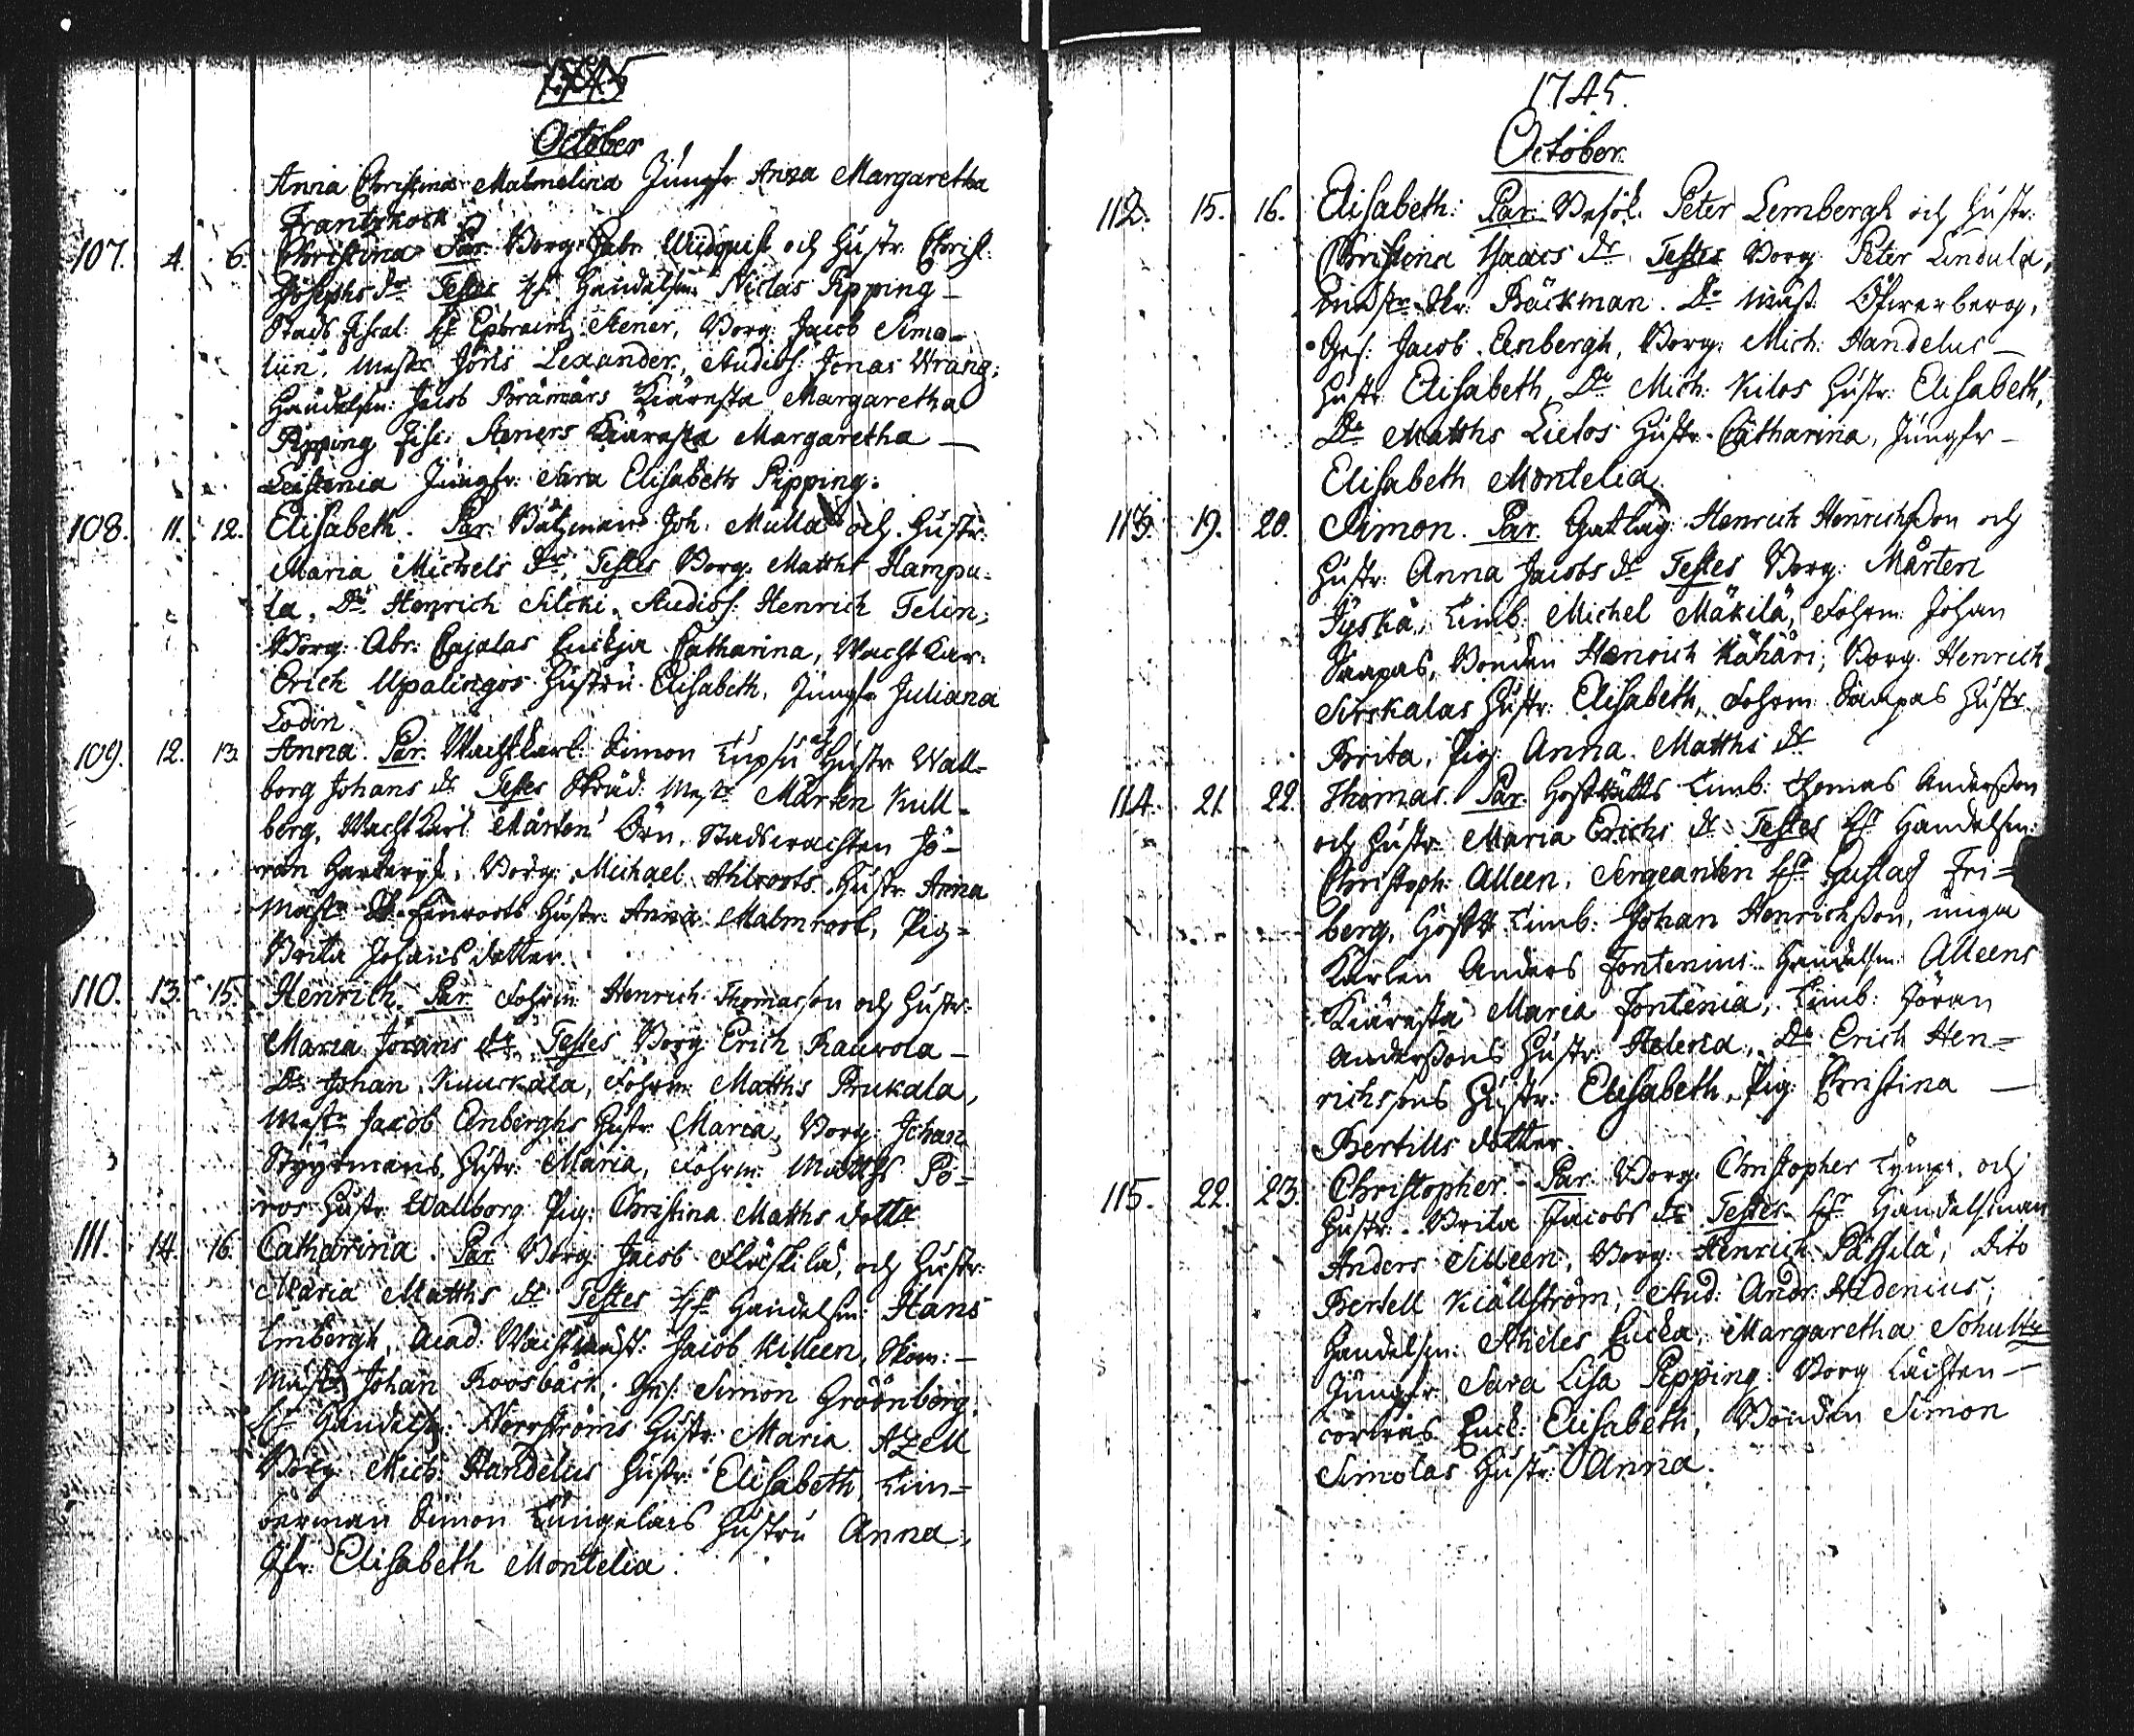 October
Anna Christina Malmelina Jungfr Anna Margaretha
Frantzkock
107. 4. 6. Christina Par. Borg. Gabr. Widquist och Hustr. Christ:
Josephs dr Testes Hr Handelsm: Niclas Pipping
Stads Fiscal: Hr Ephraim Stener, Borg: Jacob Simo-
lin, Mestr Jöns Lexander, Studios: Jonas Wrang;
Handelsm: Jacob Brämärs Kiäresta Margaretha
Pipping Fisc: Steners Kiäresta Margaretha
Leistenia Jungfr: Sara Elisabeth Pipping.
108. 11. 12. Elisabeth. Par. Båtzman Joh: Mulla och Hustr:
Maria Michels dr. Testes Borg. Matths Hampu-
la, Do Henrich Silcki, Studios: Henrich Telin;
Borg: Abr: Cajalas Enckja Catharina, Wacht Kar:
Erich Upalingos Hustru Elisabeth, Jungfr Juliana
Lodin
109. 12. 13. Anna. Par. Wachtkarl: Simon Lupsu och Hustr Wall-
borg Johans dr Testes Skräd: Mestr Mårten Kull-
berg, Wacht Karl Mårten Örn, Stadswachten Jö-
ran, Borg: Michael Ahlroots Hustr Anna
Mestr Enroots Hustr: Anna Malmroot, Pig=
Brita Johans dotter.
110. 13. 15. Henrich. Par. Fohrm: Henrich Thomasson och Hustr:
Maria Jörans dr Testes Borg Erich Rauvola
Do Johan Kuuskala, Fohrm: Matths Prukala,
Mestr Jacob Enberghs Hustr Maria, Borg: Johan
Styyrmans Hustr: Maria, Fohrm: Matths Po=
ros Hustr Wallborg Pig: Christina Matths dottr
111. 14. 16. Catharina. Par. Borg Jacob Fläskilä, och Hustr:
Maria Matths dr Testes Hr Handelsm: Hans
Embergh, Acad: Wachtmest: Jacob Killeen, Skom:
Mestr Johan Roosbäck: Ges: Simon Gröönberg.
Hr Handelsm: Norrströms Hustr: Maria Azell
Borg: Mich: Handelus Hustr: Elisabeth, Tim=
berman Simon Tungelaes Hustru Anna,
Jfr: Elisabeth Montelia.
1745.
October.
112. 15. 16. Elisabeth: Par: Besök: Peter Lembergh och Hustr:
Christina Isaacs dr Testes Borg: Peter Lindula,
Bäckman. Do Mest: Öfwerberg,
Ges: Jacob Enbergh, Borg: Mich: Handelus
Hustr Elisabeth, Do Mich: Kilos Hustr: Elisabeth,
Do Matths Lielos Hustr. Catharina, Jungfr
Elisabeth Montelia.
113. 19. 20. Simon. Par. Henrich Henrichsson och
Hustr: Anna Jacobs dr Testes Borg: Mårten
Jyskä, Timb: Michel Mäkilä, Fohrm: Johan
Saapas, Bonden Henrich Kähäri, Borg: Henrich
Sirkalas Hustr: Elisabeth, Fohrm: Saapas Hustr
Brita, Pig: Anna Matths dr
114. 21. 22. Thomas. Par. Timb: Thomas Andersson
och Hustr: Maria Erichs dr Testes Hr Handelsm:
Christoph: Alleen, Sergeanten Hr Gustaf Fri=
berg, Timb: Johan Henrichsson, unga
Karlen Anders Fontenius. Handelsm: Alleens
Kiäresta Maria Fontenia, Timb: Jöran
Anderssons Hustr: Helena, Do Erich Hen=
richssons Hustr: Elisabeth, Pig: Christina
Bertills dotter.
115. 22. 23. Christopher. Par. Borg: Christopher och
Hustr. Brita Jacobs dr Testes Hr Handelsman
Anders Silleen, Borg: Henrich Pässilä, Dito
Bertell Kiällström, Stud: Andr: Aldenius;
Handelsm: Enka, Margaretha Schultz
Jungfr: Sara Lisa Pipping: Borg
Enck: Elisabeth, Bonden Simon
Simolas Hustr: Anna.